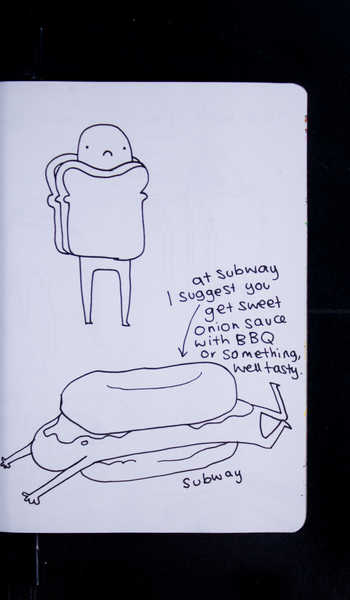 at subway
I suggest you
get sweet
onion sauce
with BBQ
or something,
well tasty.
subway